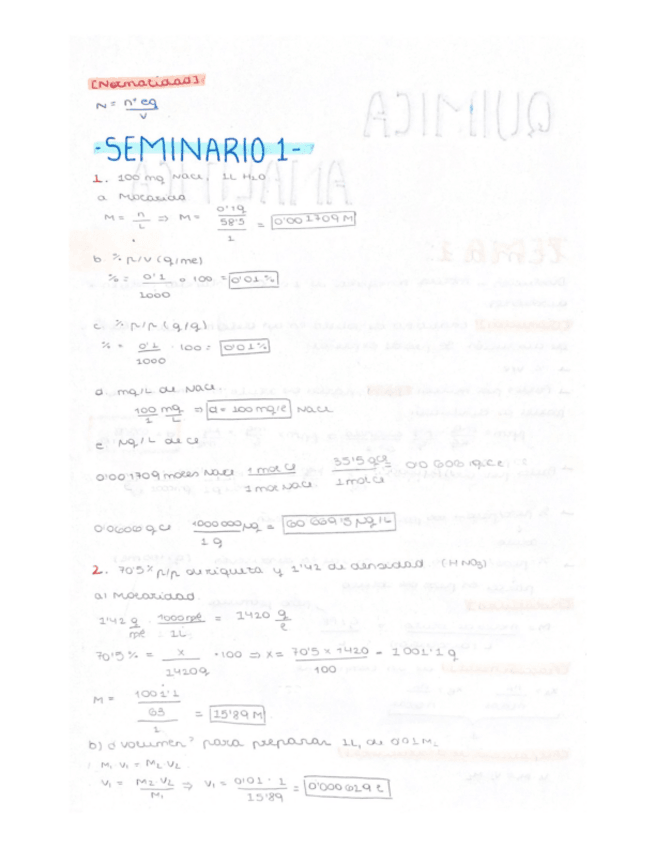 [Normalidad]
N = nº eq / V
-SEMINARIO 1-
1. 100 mg NaCl, 1L H2O
a. Molaridad
M = n/L ⇒ M = 0'1g / 58'5 / 1 = 0'001709 M
b. % p/v (g/ml)
% = 0'1 / 1000 · 100 = 0'01 %
c. % p/p (g/g)
% = 0'1 / 1000 · 100 = 0'01 %
d. mg/L de NaCl
100 mg / 1 L ⇒ d = 100 mg/l NaCl
e. µg/L de Cl
0'001709 moles NaCl 1 mol Cl / 1 mol NaCl 35'5 g Cl / 1 mol Cl =
0'0606 g Cl 1000000 µg / 1 g = 60 669'5 µg/L
2. 70'5% p/p de riqueza y 1'42 de densidad (HNO3)
a) Molaridad
1'42 g / ml · 1000 ml / 1L = 1420 g / l
70'5 % = x / 1420g · 100 ⇒ x = 70'5 x 1420 / 100 = 1001'1 g
M = 1001'1 / 63 / 1 = 15'89 M
b) d volumen? para preparar 1L, de 0'01M.
M1 · V1 = M2 · V2
V1 = M2 · V2 / M1 ⇒ V1 = 0'01 · 1 / 15'89 = 0'000629 l